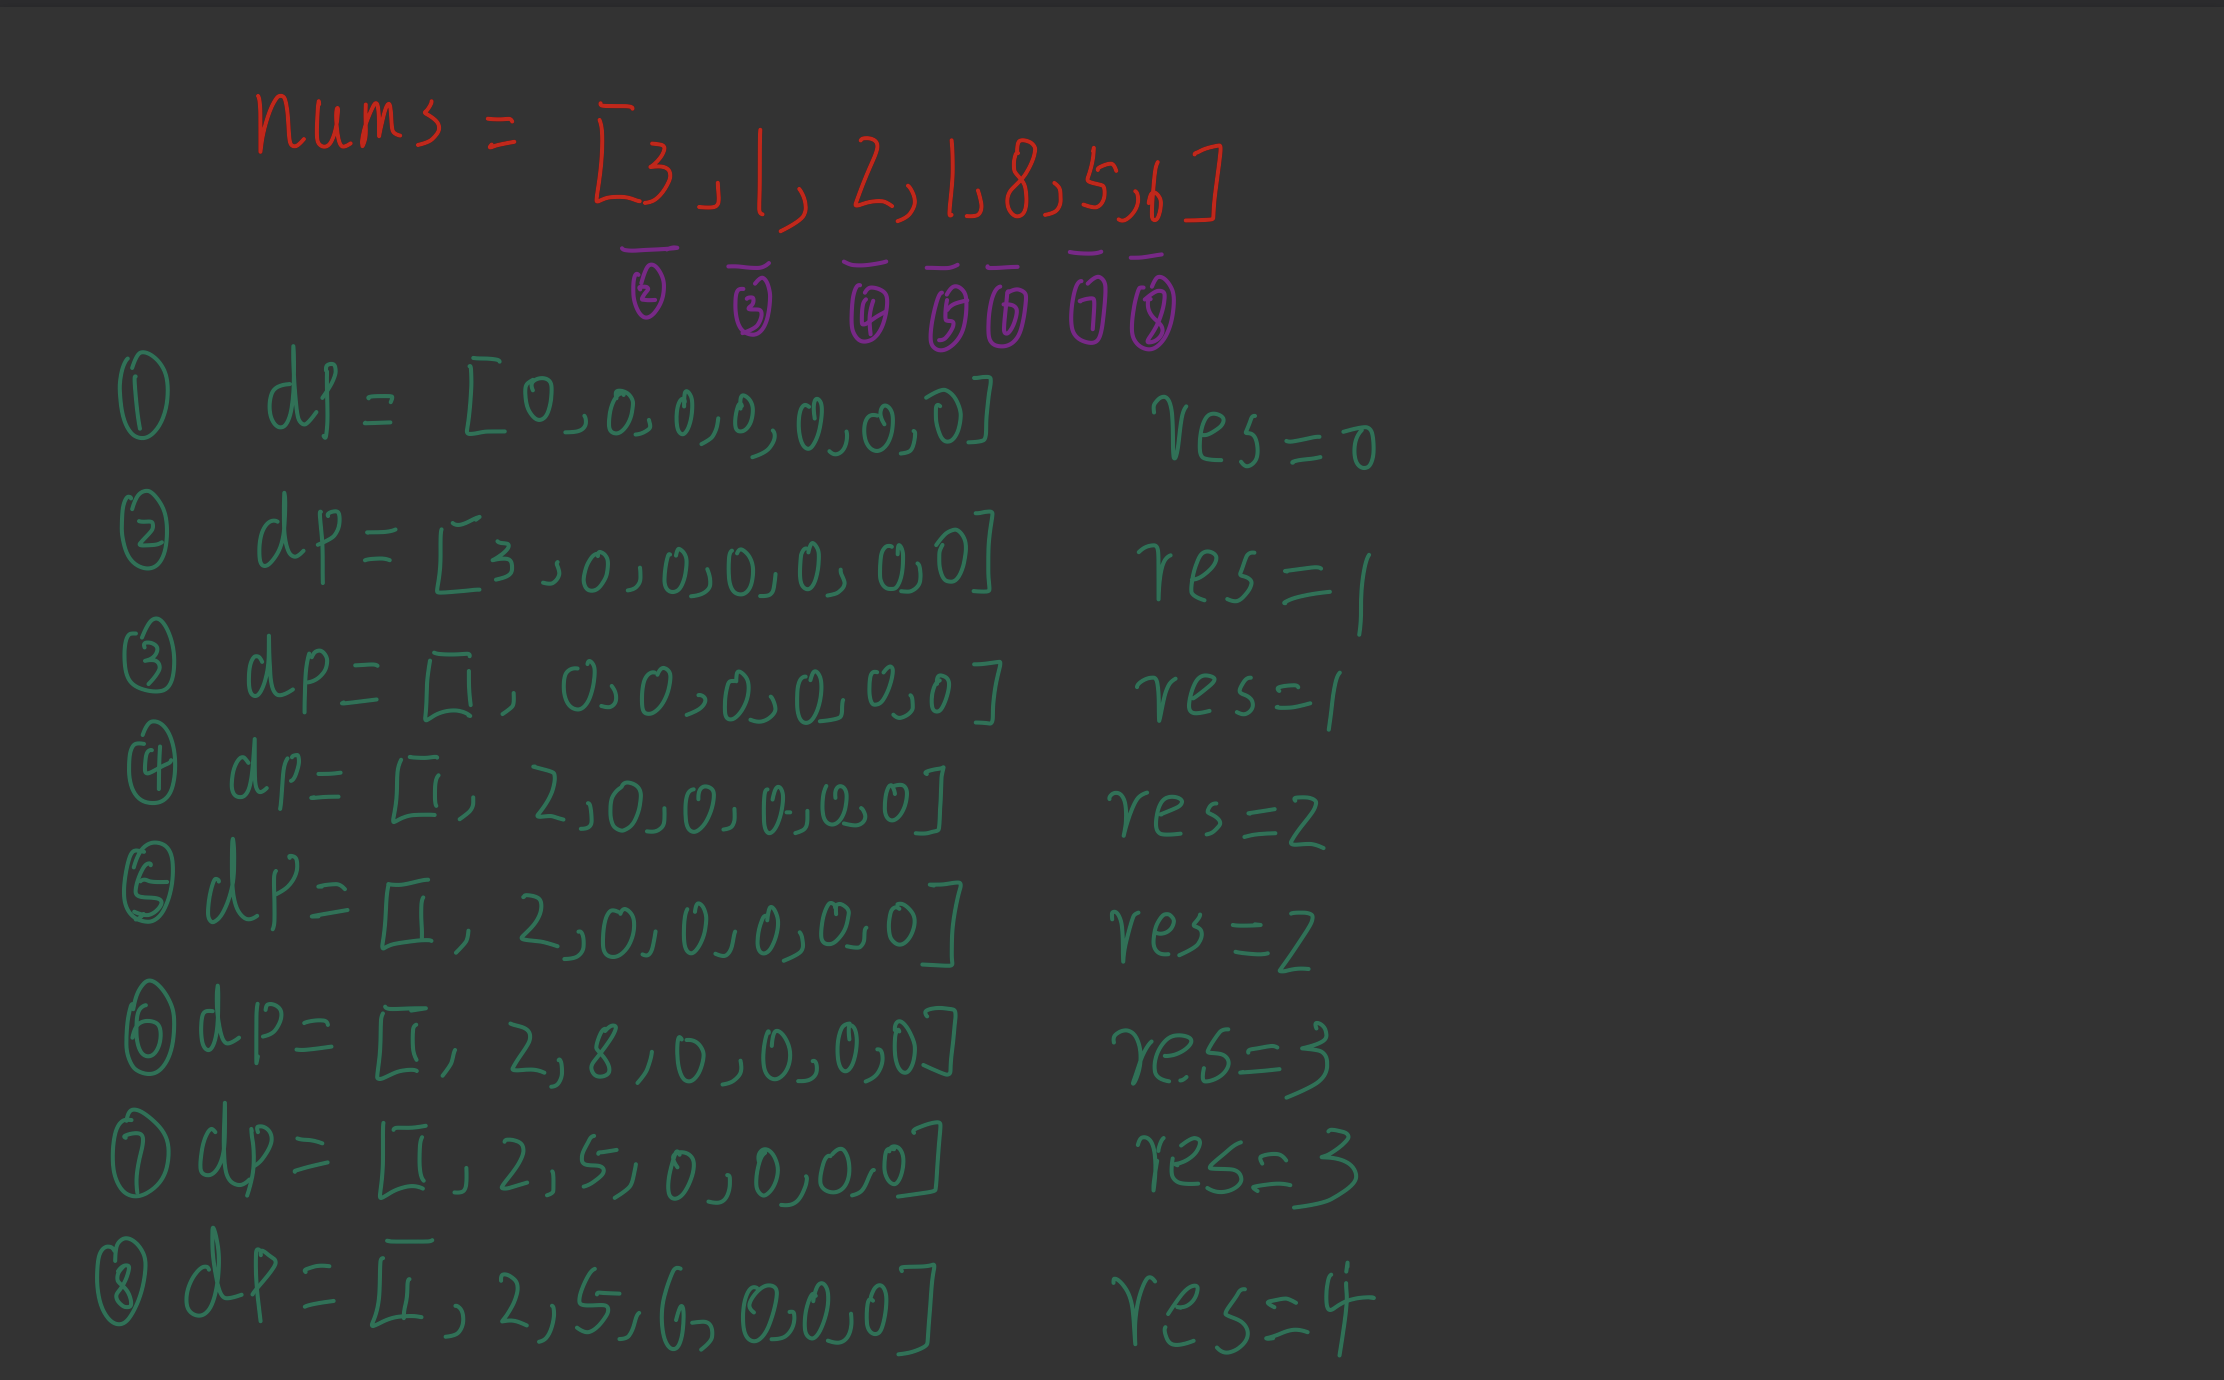 nums = [3, 1, 2, 1, 8, 5, 6]
② ③ ④ ⑤ ⑥ ⑦ ⑧
① dp = [0, 0, 0, 0, 0, 0, 0] res = 0
② dp = [3, 0, 0, 0, 0, 0, 0] res = 1
③ dp = [1, 0, 0, 0, 0, 0, 0] res = 1
④ dp = [1, 2, 0, 0, 0, 0, 0] res = 2
⑤ dp = [1, 2, 0, 0, 0, 0, 0] res = 2
⑥ dp = [1, 2, 8, 0, 0, 0, 0] res = 3
⑦ dp = [1, 2, 5, 0, 0, 0, 0] res = 3
⑧ dp = [1, 2, 5, 6, 0, 0, 0] res = 4